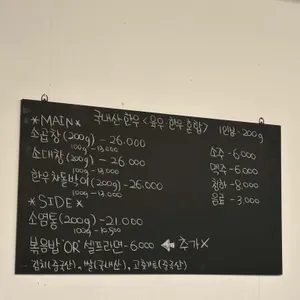 국내산한우<육우·한우 혼합> 1인분·200g
*MAIN*
소곱창(200g) - 26.000
100g - 13.000
소대창(200g) - 26.000
100g - 13.000
한우차돌박이(200g) - 26.000
100g - 13.000
*SIDE*
소염통(200g) - 21.000
100g - 10.500
볶음밥 "OR" 셀프라면 - 6.000 ← 추가X
김치(중국산), 쌀(국내산), 고춧가루(중국산)
소주 - 6.000
맥주 - 6.000
청하 - 8.000
음료 - 3.000